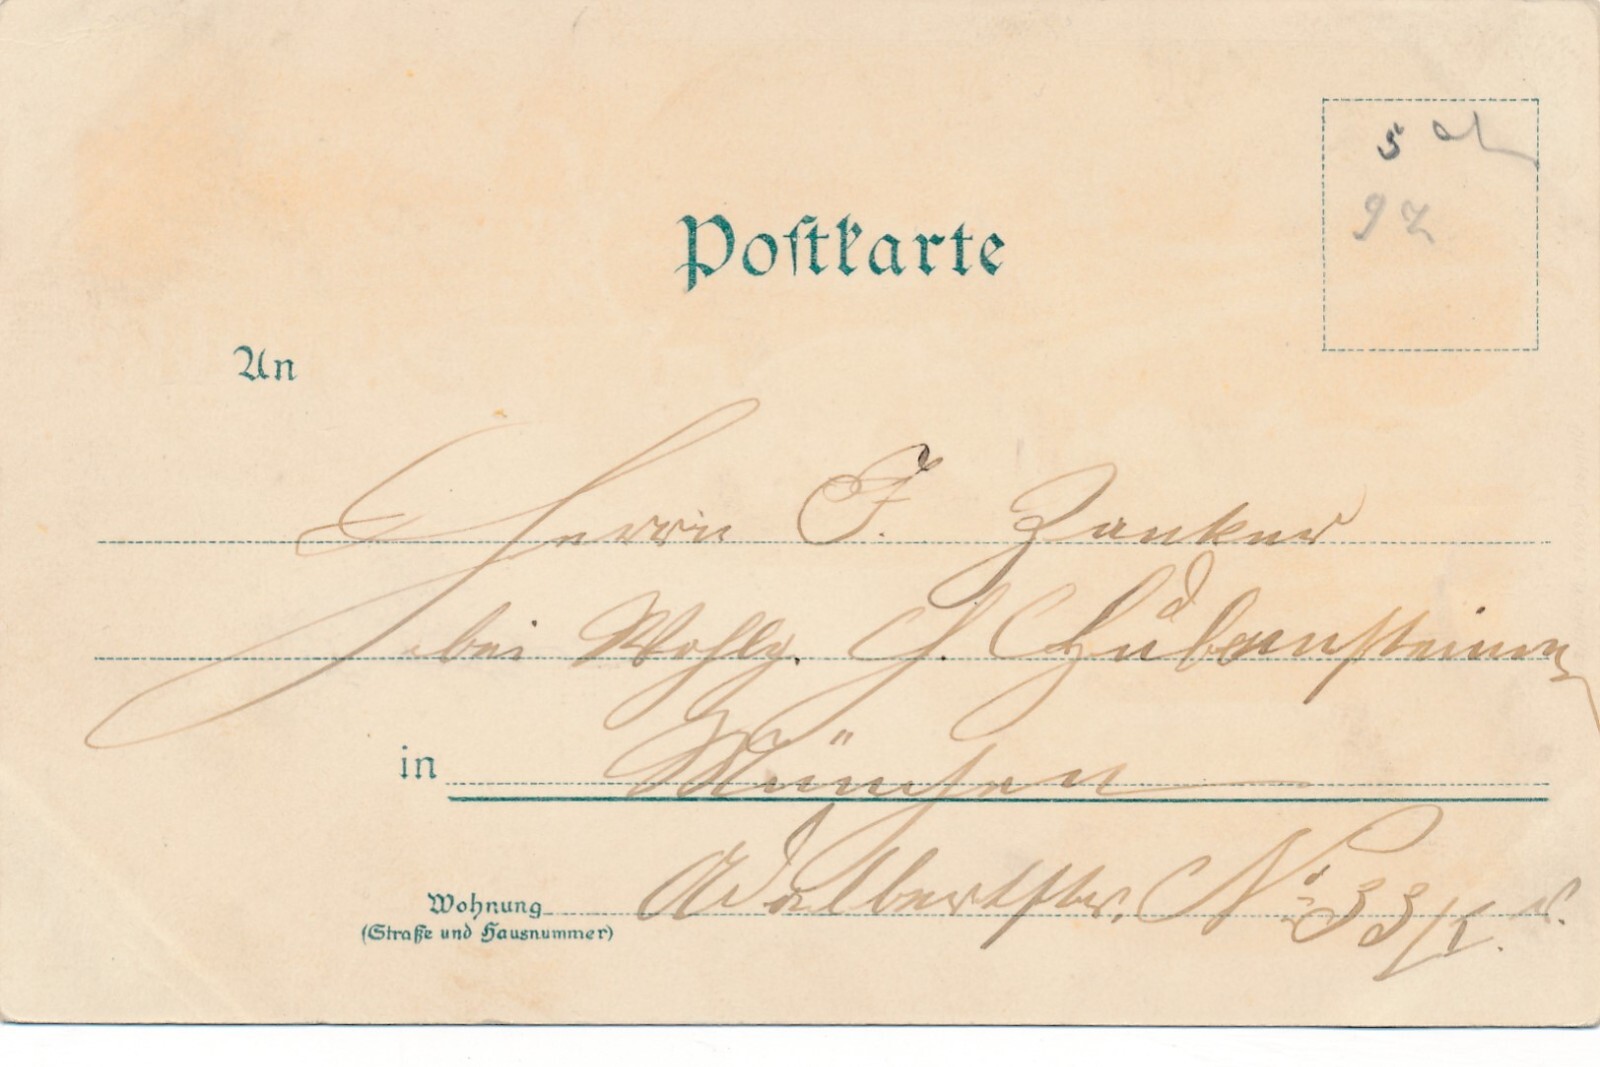 5
92
Postkarte
An
Herrn F. Zanker
bei Wohlg. H.
in München
Wohnung Adalbertstr. No 33/I. r.
(Straße und Hausnummer)